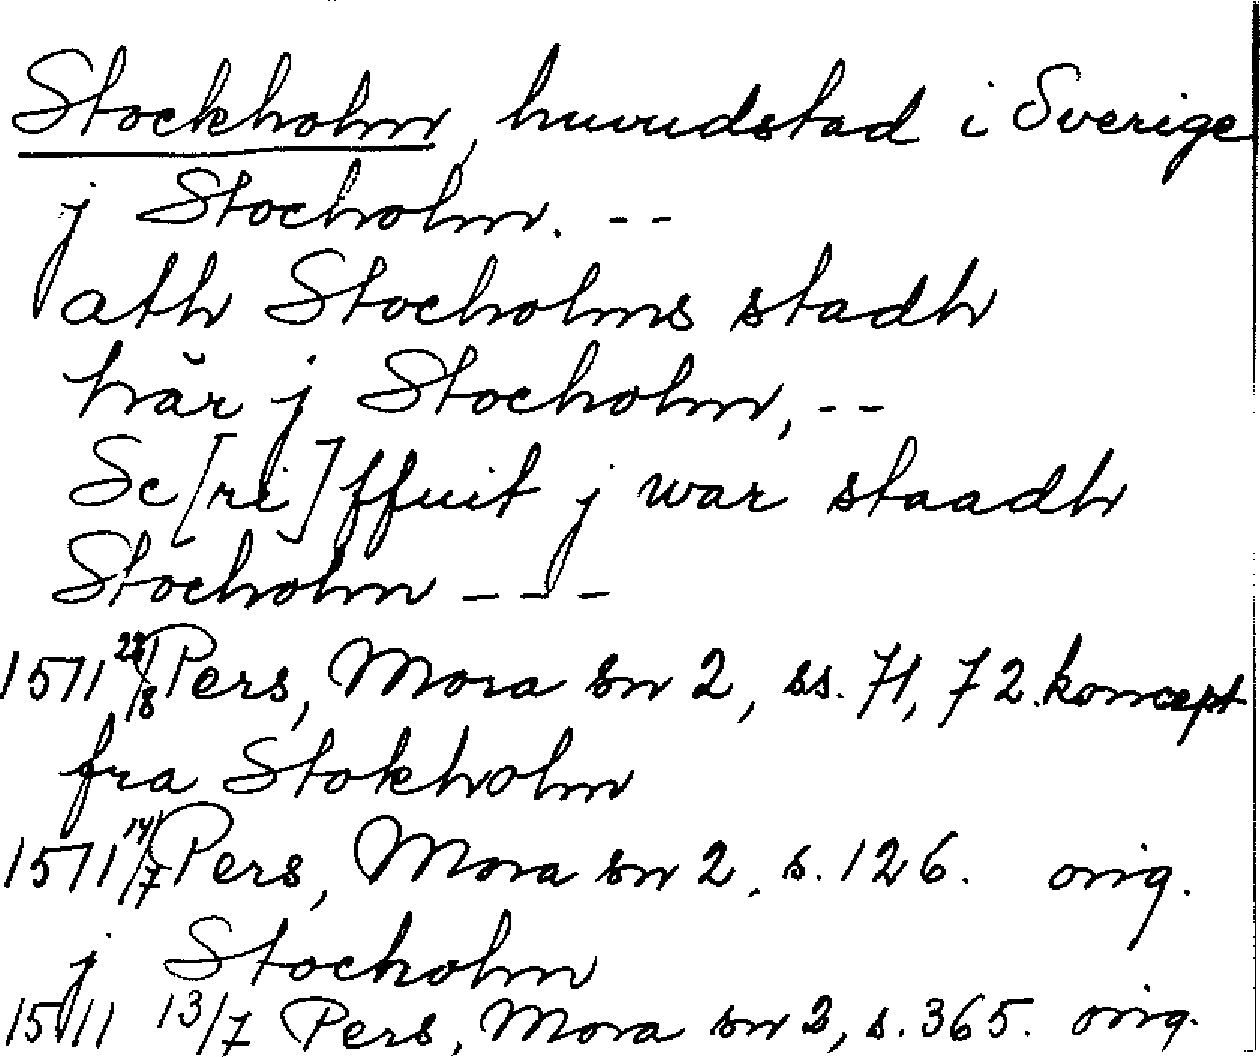 Stockholm, huvudstad i Sverige
j Stocholm. --
ath Stocholms stadh
här j Stocholm, --
Sc[ri]ffuit j war staadh
Stocholm - - -
1571 22/8 Pers, Mora sn 2, ss. 71, 72. koncept
fra Stokholm
1571 14/7 Pers, Mora sn 2, s. 126. orig.
j Stocholm
1511 13/7 Pers, Mora sn 2, s. 365. orig.